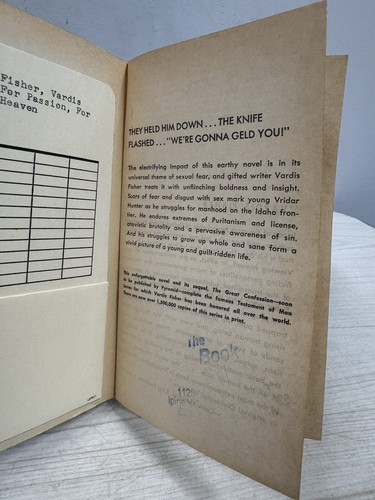 Fisher, Vardis
For Passion, For
Heaven
THEY HELD HIM DOWN . . . THE KNIFE
FLASHED . . . "WE'RE GONNA GELD YOU!"
The electrifying impact of this earthy novel is in its
universal theme of sexual fear, and gifted writer Vardis
Fisher treats it with unflinching boldness and insight.
Scars of fear and disgust with sex mark young Vridar
Hunter as he struggles for manhood on the Idaho fron-
tier. He endures extremes of Puritanism and license,
atavistic brutality and a pervasive awareness of sin.
And his struggles to grow up whole and sane form a
vivid picture of a young and guilt-ridden life.
This unforgettable novel and its sequel, The Great Confession—soon
to be published by Pyramid—complete the famous Testament of Man
Series for which Vardis Fisher has been honored all over the world.
There are now over 1,500,000 copies of this series in print.
The
Book